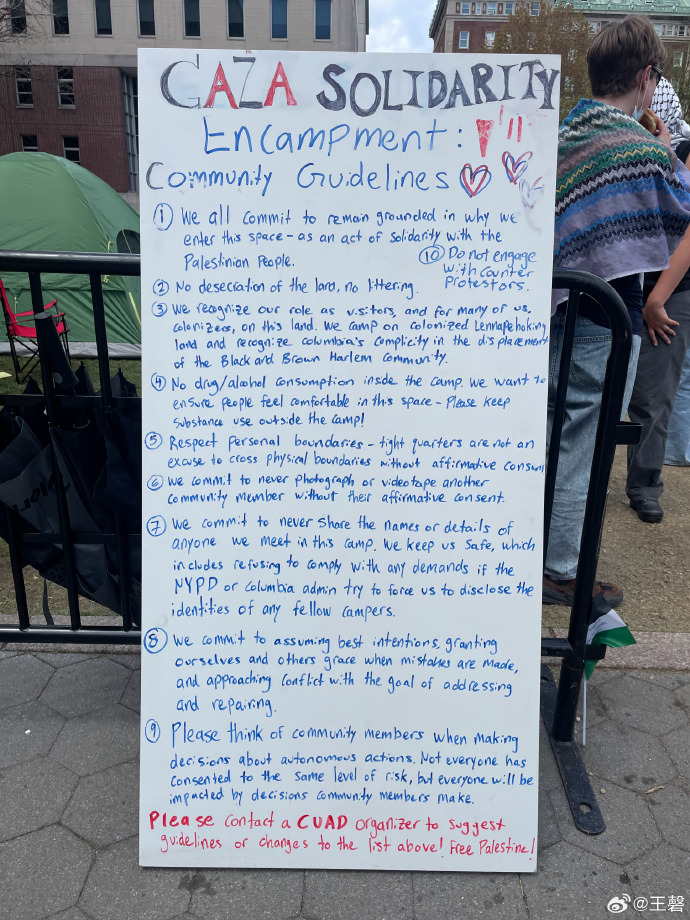 GAZA SOLIDARITY
Encampment:
Community Guidelines
① We all commit to remain grounded in why we
enter this space - as an act of solidarity with the
Palestinian People.
⑩ Do not engage
with counter
Protestors.
② No desecration of the land, no littering.
③ We recognize our role as visitors, and for many of us,
colonizers, on this land. We camp on colonized Lennapehoking
land and recognize columbia's complicity in the displacement
of the Black and Brown Harlem Community.
④ No drug/alcohol consumption inside the camp. We want to
ensure people feel comfortable in this space - Please keep
substance use outside the camp!
⑤ Respect Personal boundaries - tight quarters are not an
excuse to cross physical boundaries without affirmative consent
⑥ We commit to never photograph or videotape another
community member without their affirmative consent.
⑦ We commit to never share the names or details of
anyone we meet in this camp. We keep us safe, which
includes refusing to comply with any demands if the
NYPD or Columbia admin try to force us to disclose the
identities of any fellow campers.
⑧ We commit to assuming best intentions, granting
ourselves and others grace when mistakes are made,
and approaching conflict with the goal of addressing
and repairing.
⑨ Please think of community members when making
decisions about autonomous actions. Not everyone has
consented to the same level of risk, but everyone will be
impacted by decisions community members make.
Please contact a CUAD organizer to suggest
guidelines or changes to the list above! Free Palestine!
@王磬